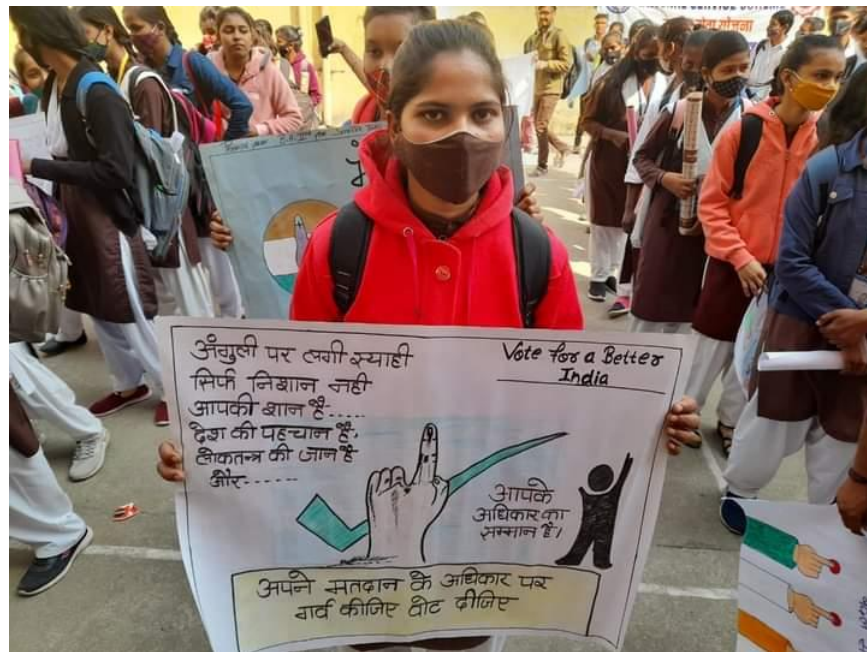 SERVICE SCHEME
योजना
अंगुली पर लगी स्याही
सिर्फ निशान नही
आपकी शान है.....
देश की पहचान है,
लोकतन्त्र की जान है
और......
Vote for a Better
India
आपके
अधिकार का
सम्मान है।
अपने मतदान के अधिकार पर
गर्व कीजिए वोट दीजिए